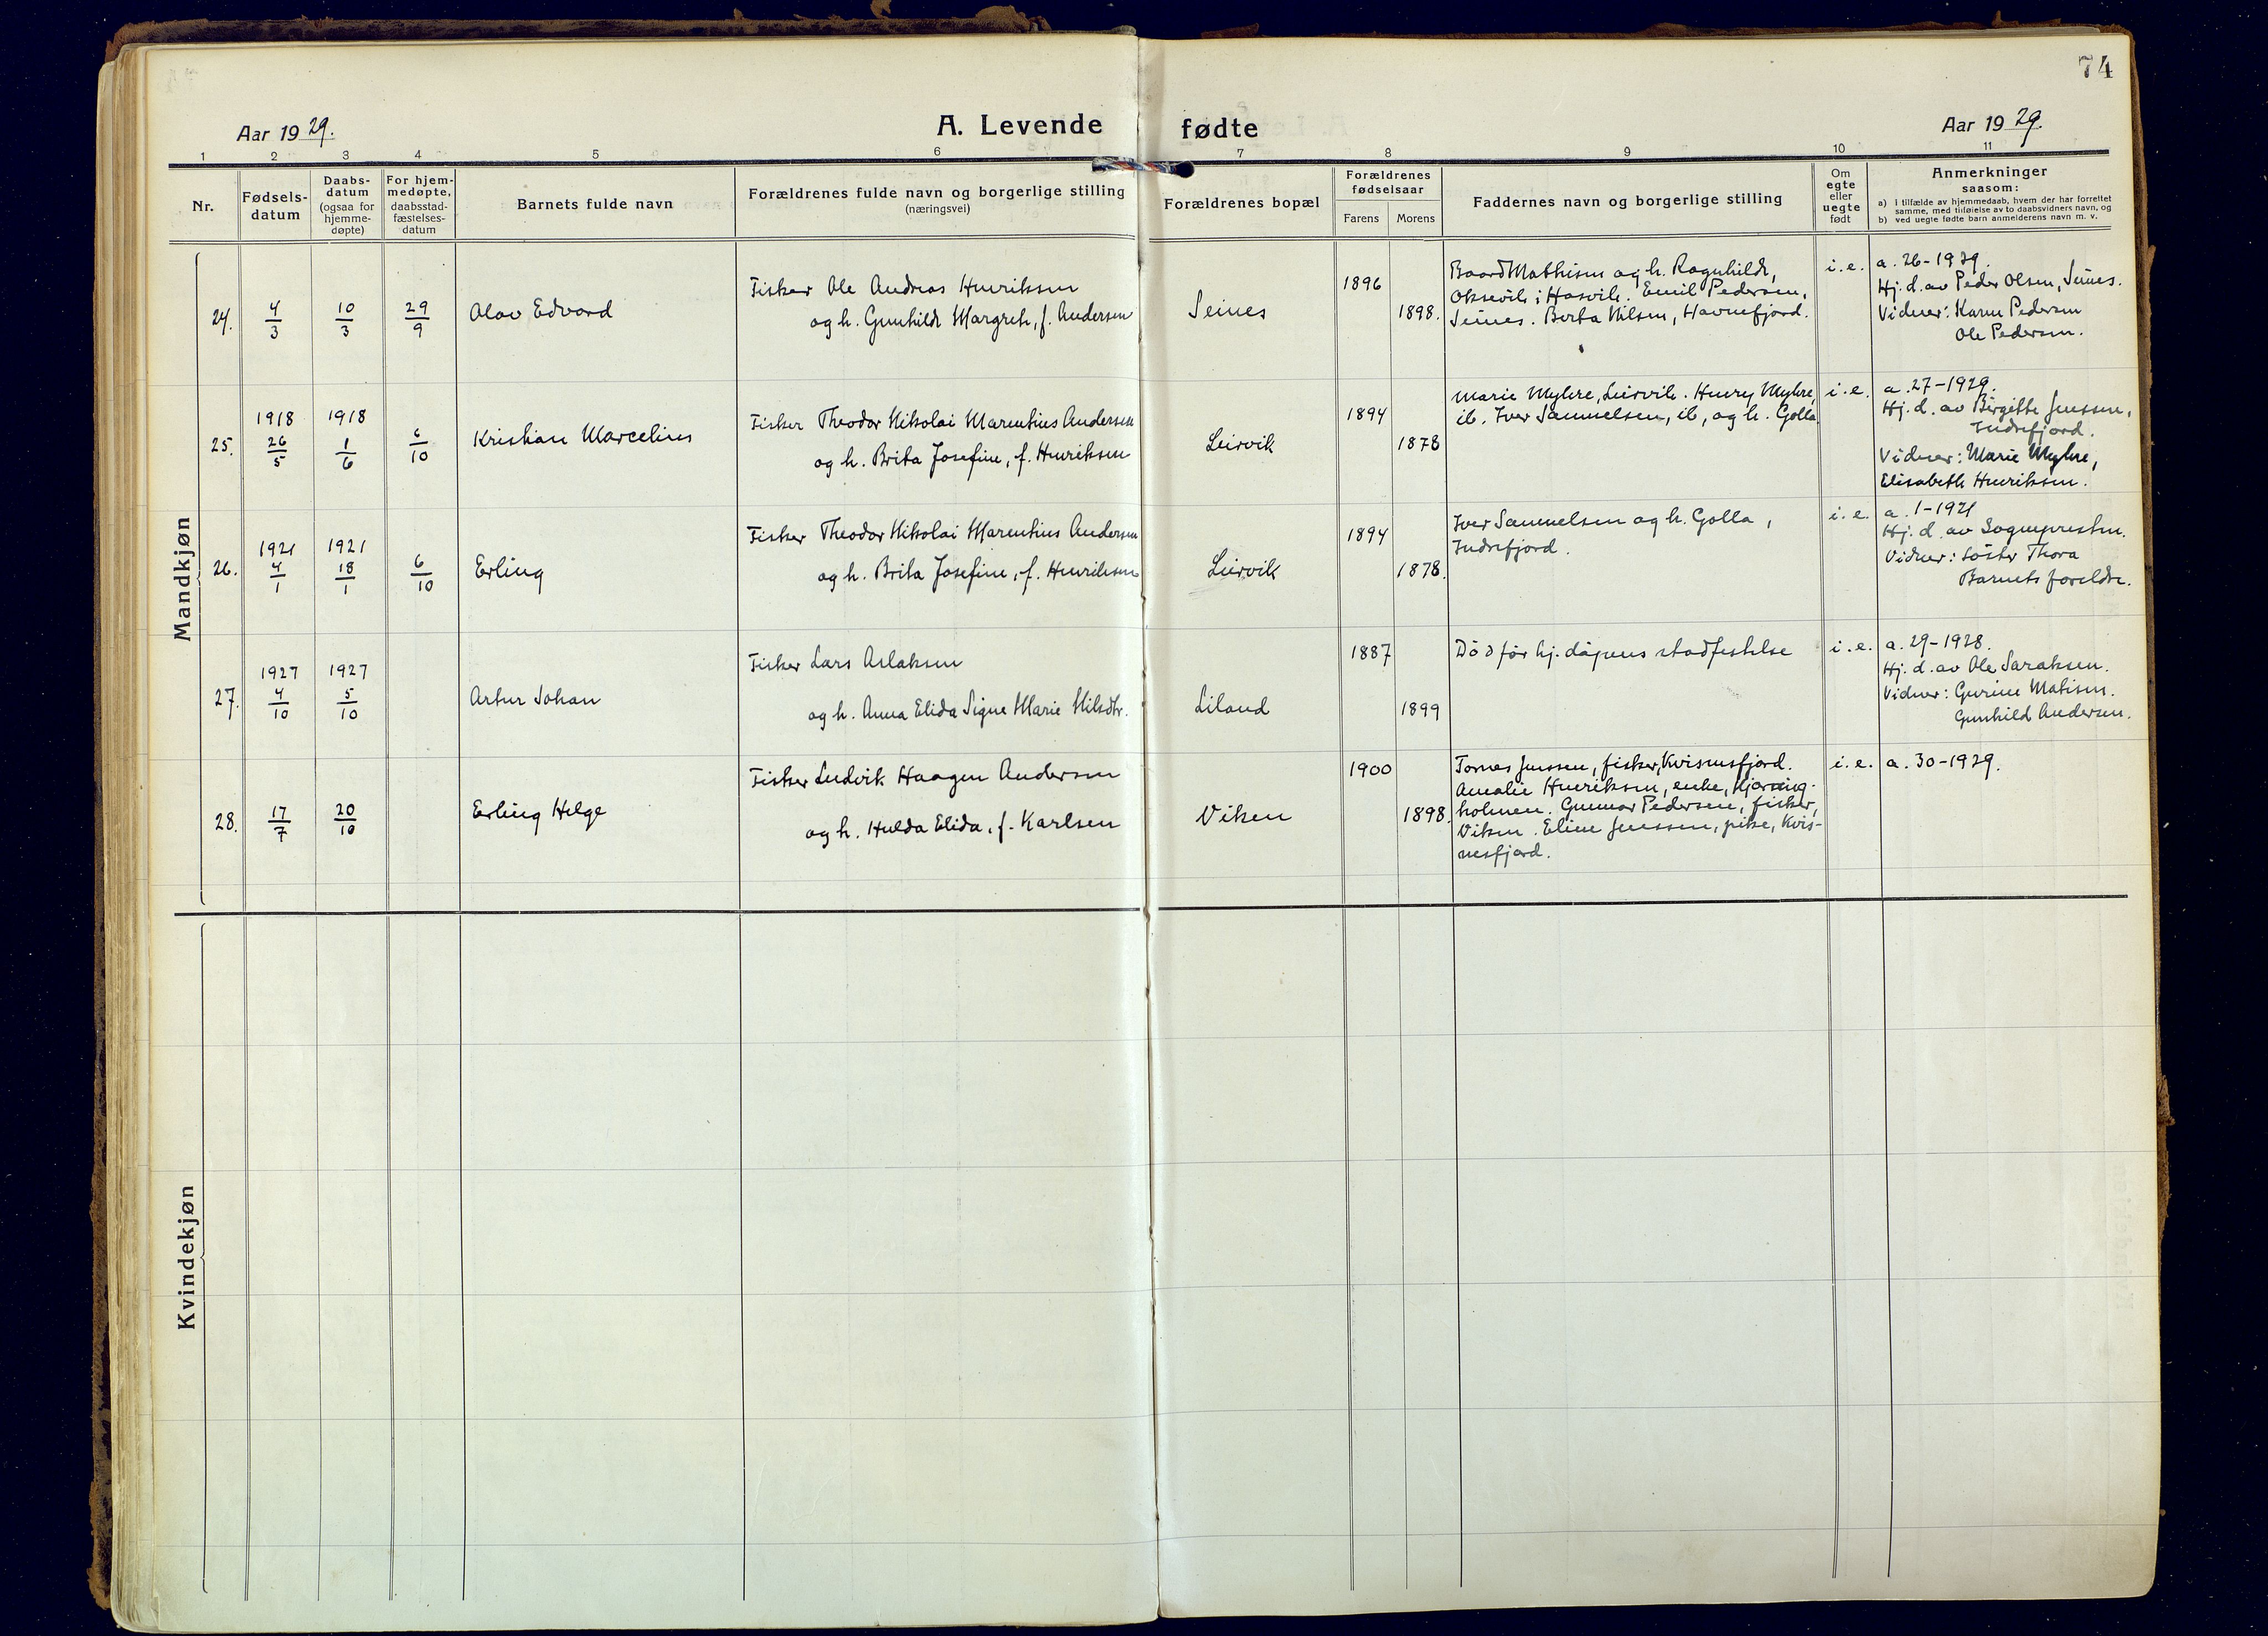 74
Aar 1929.
A. Levende fødte
Aar 1929.
1 2 3 4 5 6 7 8 9 10 11
Nr.
Fødsels-
datum
Daabs-
datum
(ogsaa for
hjemme-
døpte)
For hjem-
medøpte,
daabsstad-
fæstelses-
datum
Barnets fulde navn
Forældrenes fulde navn og borgerlige stilling
(næringsvei)
Forældrenes bopæl
Forældrenes
fødselsaar
Farens Morens
Faddernes navn og borgerlige stilling
Om
egte
eller
uegte
født
Anmerkninger
saasom:
a) i tilfælde av hjemmedaab, hvem der har forrettet
samme, med tilføielse av to daabsvidners navn, og
b) ved uegte fødte barn anmelderens navn m. v.
Mandkjøn
24.
4/3
10/3
29/9
Olav Edvard
Fisker Ole Andreas Henriksen
og h. Gunhild Margreth, f. Andersen
Seines
1896
1898.
Baard Mathisen og h. Ragnhild,
Oksevik i Hasvik. Emil Pedersen,
Seines. Berta Nilsen, Havnefjord.
i. e.
a. 26-1929.
Hj. d. av Peder Olsen, Seines.
Vidner: Karen Pedersen
Ole Pedersen.
25.
1918
26/5
1918
1/6
6/10
Kristian Marcelius
Fisker Theodor Nikolai Marentius Andersen
og h. Brita Josefine, f. Henriksen
Leirvik
1894
1878
Marie Myhre, Leirvik. Henry Myhre,
ib. Iver Samuelsen, ib, og h. Golla.
i. e.
a. 27-1929.
Hj. d. av Birgitte Jenssen,
Indrefjord.
Vidner: Marie Myhre,
Elisabeth Henriksen.
26.
1921
4/1
1921
18/1
6/10
Erling
Fisker Theodor Nikolai Marentius Andersen
og h. Brita Josefine, f. Henriksen
Leirvik
1894
1878.
Iver Samuelsen og h. Golla,
Indrefjord.
i. e.
a. 1-1921
Hj. d. av Sognepresten.
Vidner: søster Thora
Barnets foreldre.
27.
1927
4/10
1927
5/10
Artur Johan
Fisker Lars Aslaksen
og h. Anna Elida Signe Marie Nilsdtr.
Liland
1887
1899
Død før hj. dåpens stadfestelse
i. e.
a. 29-1928.
Hj. d. av Ole Saraksen.
Vidner: Gurine Matisen.
Gunhild Andersen.
28.
17/7
20/10
Erling Helge
Fisker Ludvik Haagen Andersen
og h. Hulda Elida, f. Karlsen
Viken
1900
1898.
Tomas Jenssen, fisker, Kvisnesfjord.
Amalie Henriksen, enke, Kjerring-
holmen. Gunnar Pedersen, fisker,
Viken. Eline Jenssen, pike, Kvis-
nesfjord.
i. e.
a. 30-1929.
Kvindekjøn